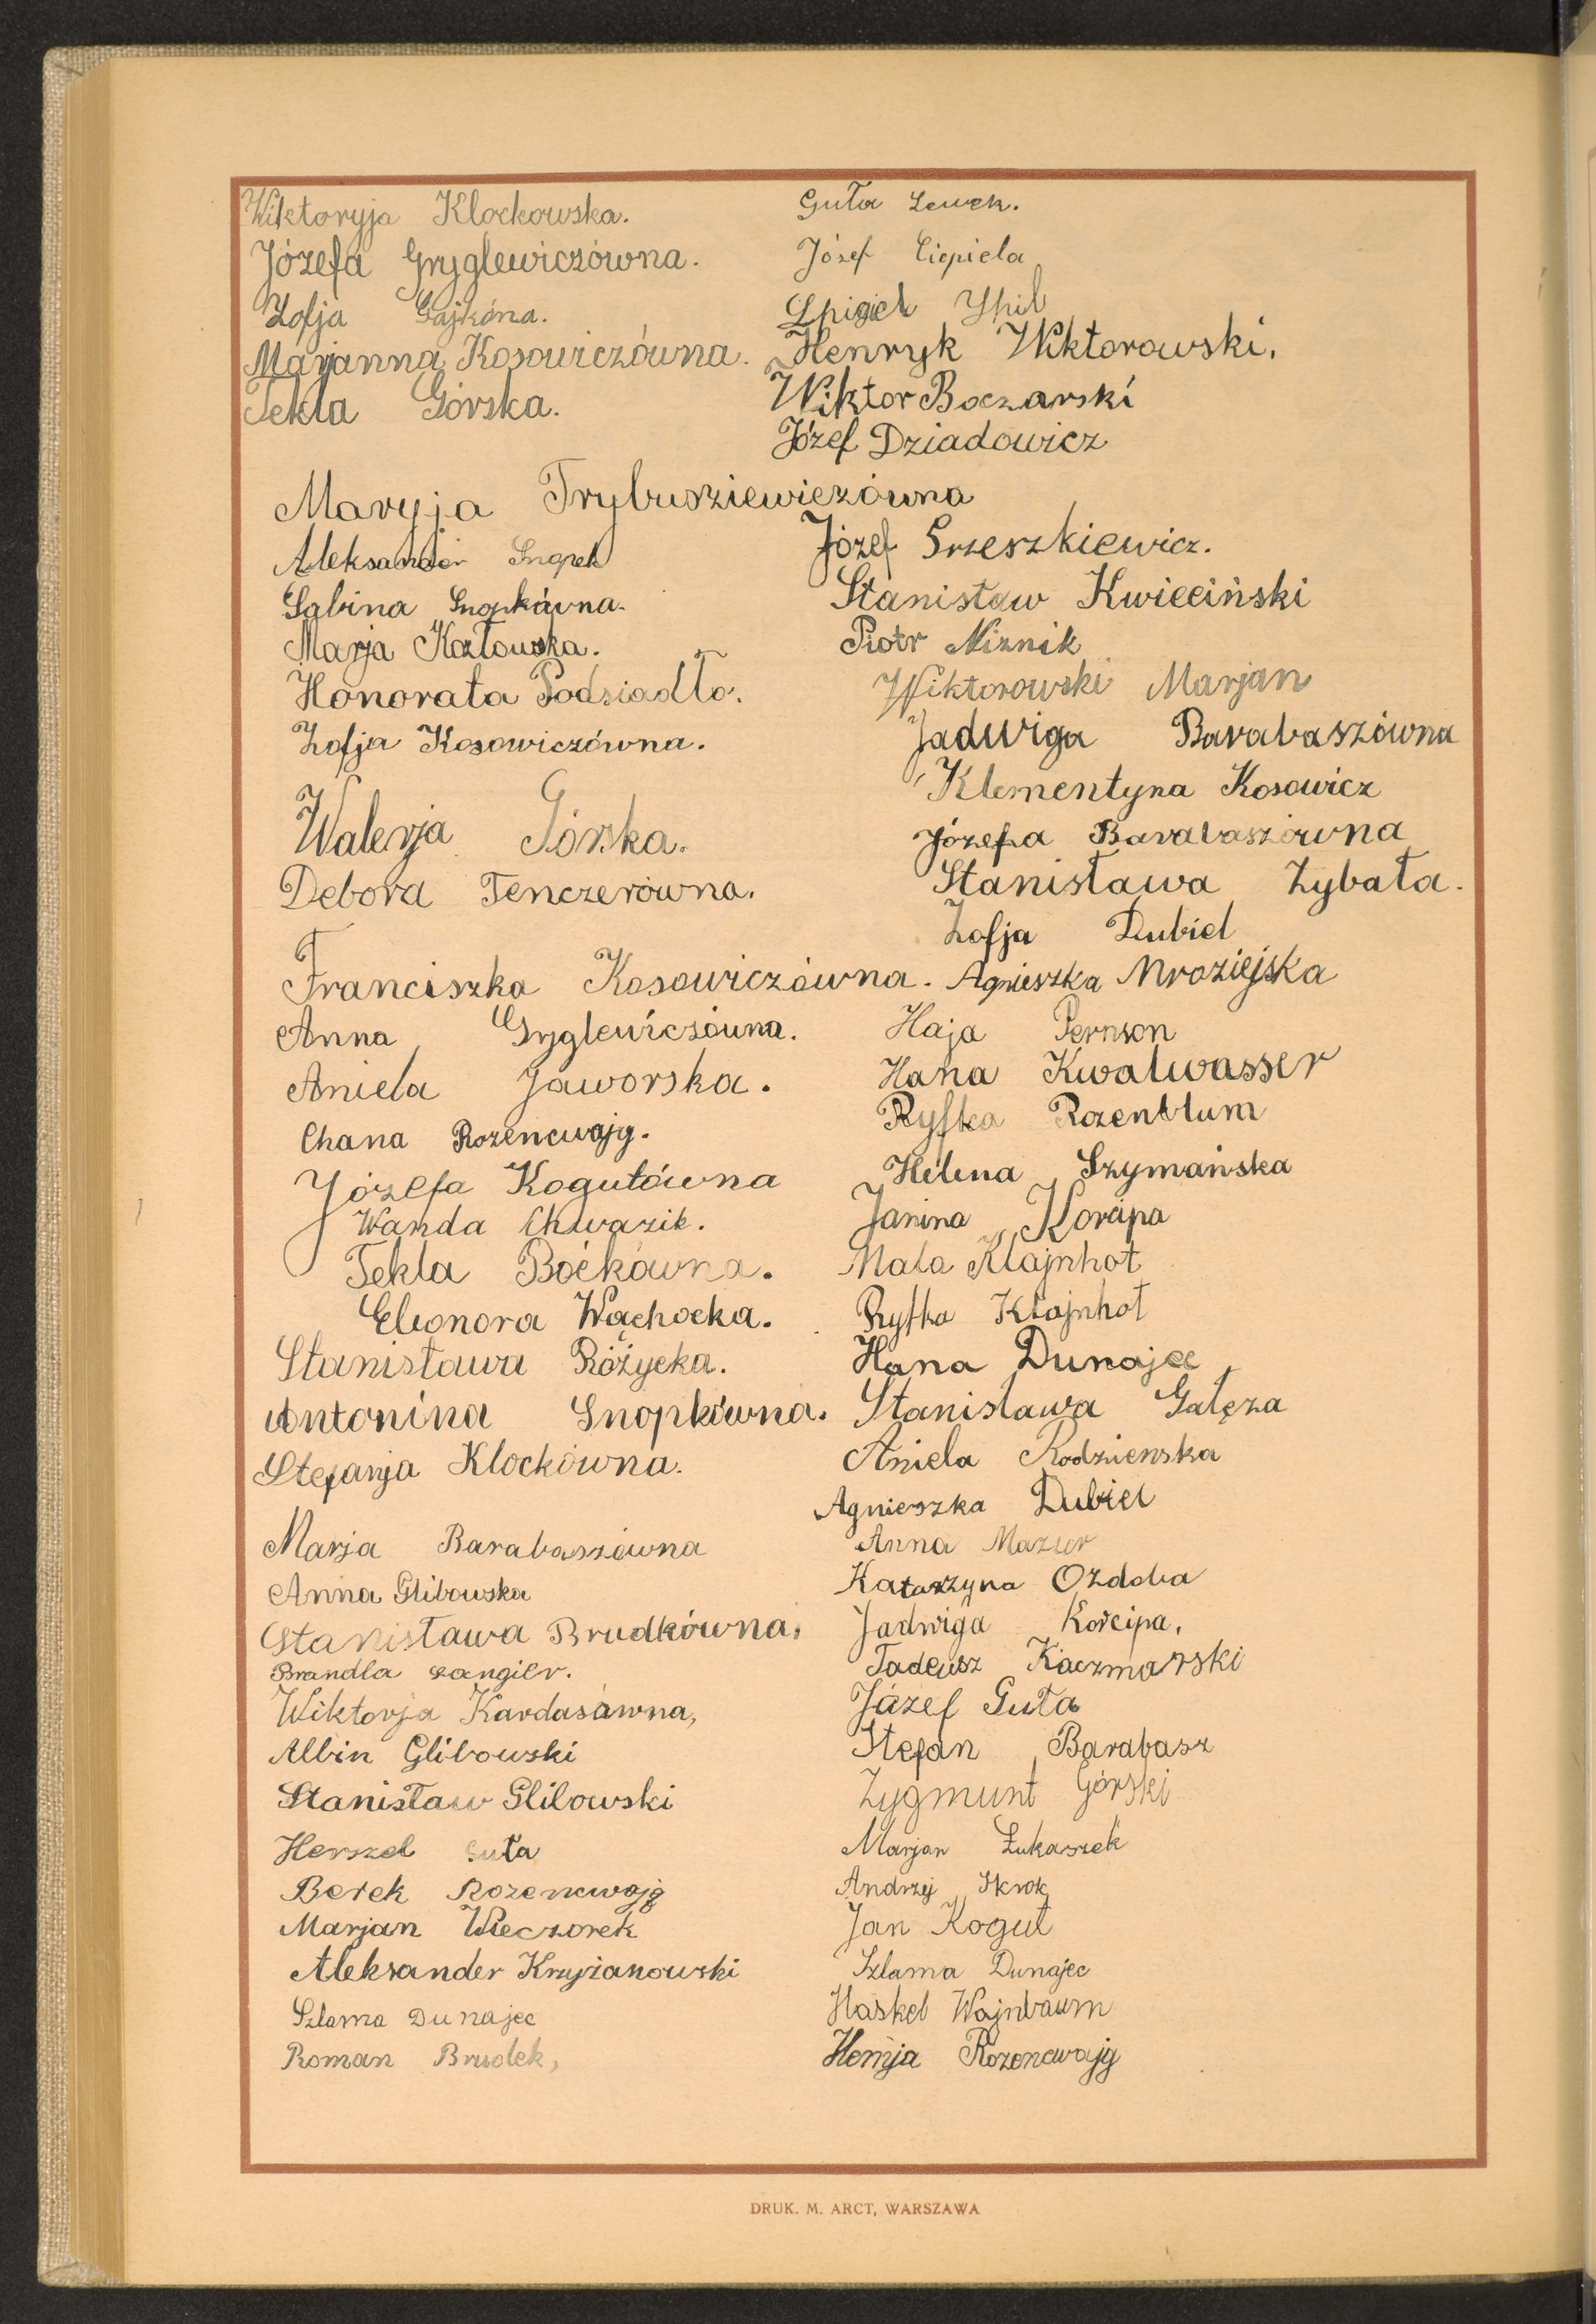 Wiktoryja Klockowska.
Józefa Gryglewiczówna.
Zofja Gajkóna.
Marjanna Kosowiczówna.
Tekla Górska.
Guta Lewek.
Józef Ciepiela
Henryk Wiktorowski.
Wiktor Boczarski
Józef Dziadowicz
Maryja Trybusziewiczówna
Aleksander Snopek
Sabina Snopkówna.
Marja Kozłowska.
Honorata Podsiadło.
Zofja Kosowiczówna.
Walerja Górska.
Debora Tenczerówna.
Franciszka Kosowiczówna.
Anna Gryglewiczówna.
Aniela Jaworska.
Chana Rozencwajg.
Józefa Kogutówna
Wanda Chwazik.
Tekla Boćkówna.
Eleonora Wąchocka.
Stanisława Różycka.
Antonina Snopkówna.
Stefanja Klockówna.
Marja Barabaszówna
Anna Glibowska
Stanisława Brudkówna.
Brandla Langier.
Wiktorja Kardasówna,
Albin Glibowski
Stanisław Glibowski
Herszel Guta
Berek Rozencwajg
Marjan Wieczorek
Aleksander Krzyżanowski
Szlama Dunajec
Roman Brudek,
Józef Grzeszkiewicz.
Stanisław Kwieciński
Piotr Niznik
Wiktorowski Marjan
Jadwiga Barabaszówna
Klementyna Kosowicz
Józefa Barabaszówna
Stanisława Zybała.
Zofja Dubiel
Agnieszka Mroziejska
Haja Pernson
Hana Kwalwasser
Ryfka Rozenblum
Helena Szymańska
Janina Korcipa
Mala Klajnhot
Ryfka Klajnhot
Hana Dunajec
Stanisława Gałęza
Aniela Rodzienska
Agnieszka Dubiel
Anna Mazur
Katarzyna Ozdoba
Jadwiga Korcipa,
Tadeusz Kaczmarski
Józef Guta
Stefan Barabasz
Zygmunt Górski
Marjan Łukaszek
Andrzej Skrok
Jan Kogut
Szlama Dunajec
Haskel Wajnbaum
Hemja Rozencwajg
DRUK. M. ARCT, WARSZAWA